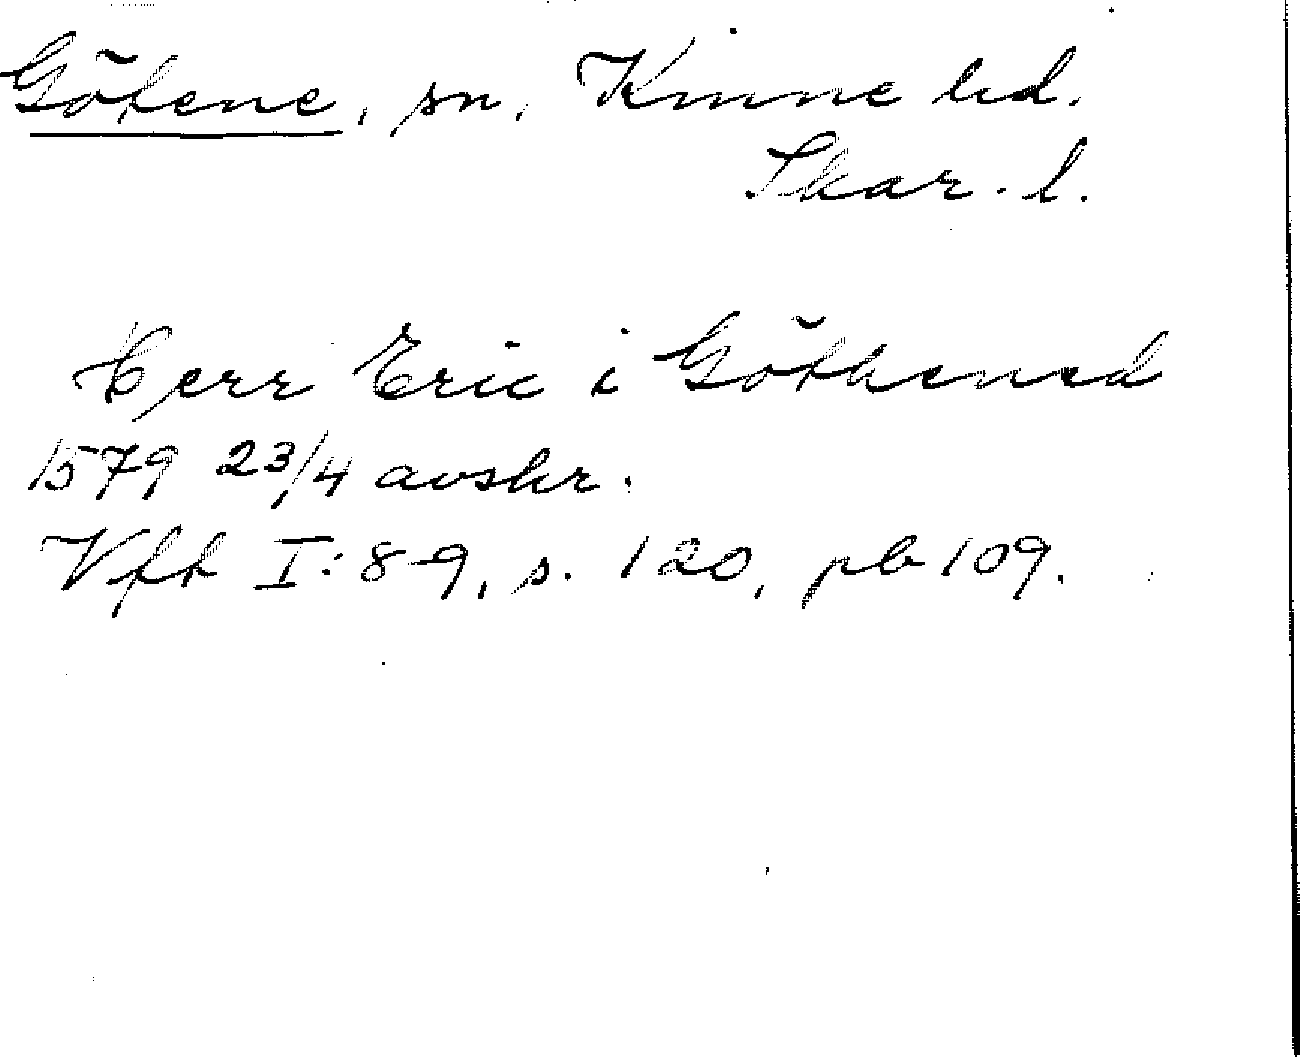 Götene, sn, Kinne hd.
Skar. l.
Herr Eric i Göthened
1579 23/4 avskr.
Vfft I: 8-9, s. 120, pb 109.